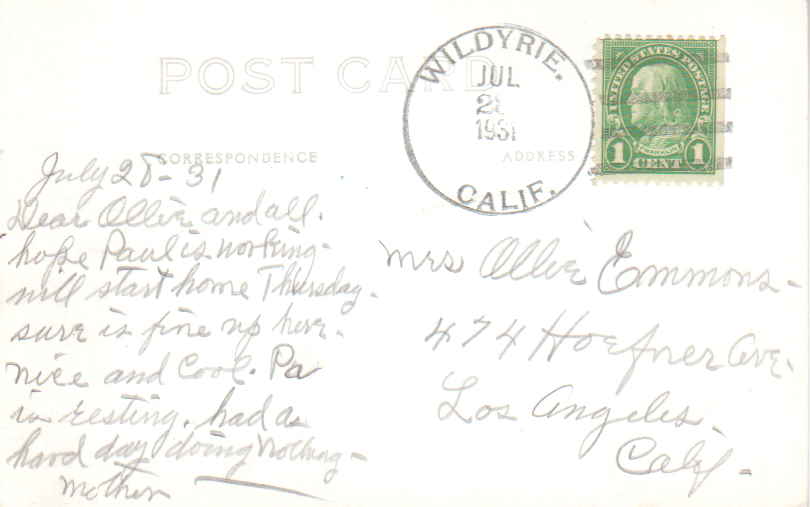 POST CARD
WILDYRIE.
JUL
28
1931
CALIF.
UNITED STATES POSTAGE
FRANKLIN
1 CENT 1
CORRESPONDENCE
ADDRESS
July 28-31
Dear Ollie and all.
hope Paul is working-
will start home Thursday-
sure is fine up here.
nice and Cool. Pa
is resting. had a
hard day doing nothing-
Mother
Mrs Ollie Emmons-
474 Hoefner Ave.
Los Angeles-
Calif-